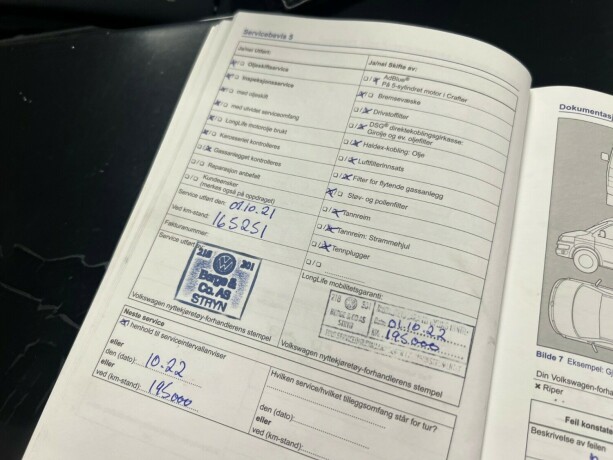 Servicebevis 5
Ja/nei Utført:
Oljeskiftservice
Inspeksjonsservice
med oljeskift
med utvidet serviceomfang
LongLife motorolje brukt
Karosseriet kontrolleres
Gassanlegget kontrolleres
Reparasjon anbefalt
Kundeønsker
(merkes også på oppdraget)
Service utført den: 01.10.21
Ved km-stand: 165251
Fakturanummer:
Service utført
218 201
Berge &
Co. AS
STRYN
Volkswagen nyttekjøretøy-forhandlerens stempel
Ja/nei Skifte av:
AdBlue®
På 5-sylindret motor i Crafter
Bremsevæske
Drivstoffilter
DSG® direktekoblingsgirkasse:
Girolje og ev. oljefilter
Haldex-kobling: Olje
Luftfilterinnsats
Filter for flytende gassanlegg
Støv- og pollenfilter
Tannreim
Tannreim: Strammehjul
Tennplugger
LongLife mobilitetsgaranti:
01.10.22
195000
Volkswagen nyttekjøretøy-forhandlerens stempel
Neste service
I henhold til serviceintervallanviser
eller
den (dato): 10.22
eller
ved (km-stand): 195000
Hvilken service/hvilket tilleggsomfang står for tur?
den (dato):
eller
ved (km-stand):
Bilde 7 Eksempel:
Din Volkswagen-
× Riper
Beskrivelse av feilen